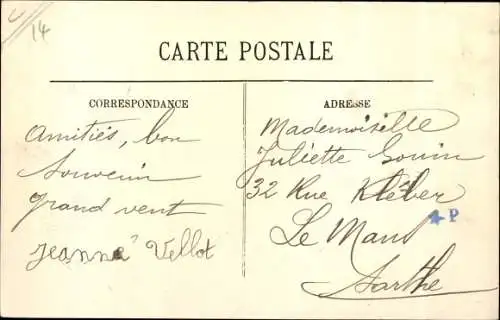 14
CARTE POSTALE
CORRESPONDANCE
Amitiés, bon
souvenir
grand vent
Jeanne Vellot
ADRESSE
Mademoiselle
Juliette Gouin
32 Rue Kléber
Le Mans
Sarthe
P